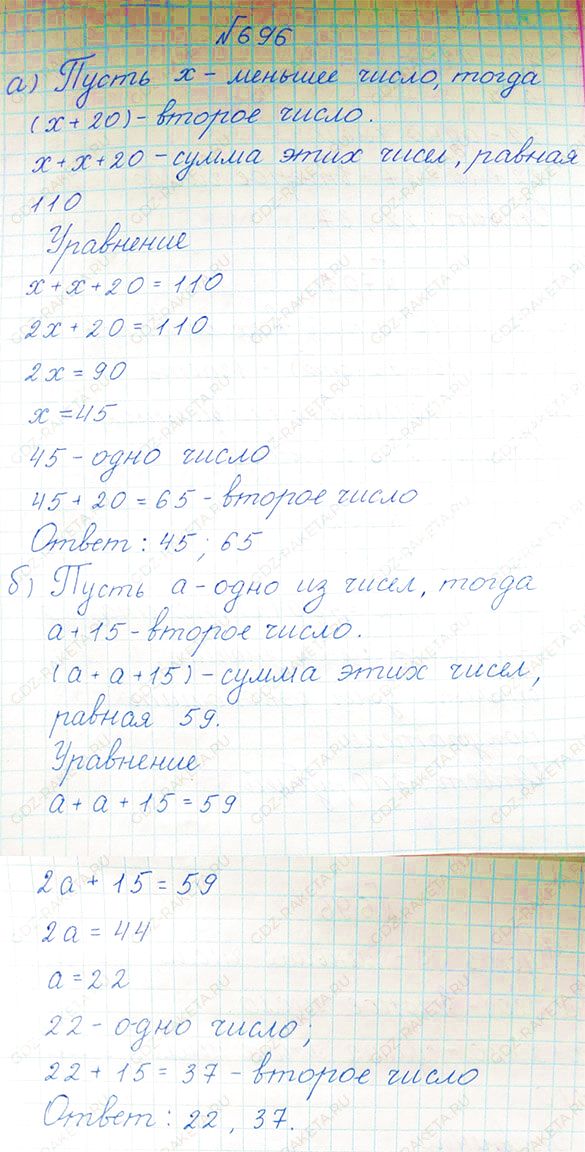 №696
а) Пусть х - меньшее число, тогда
(х + 20) - второе число.
х + х + 20 - сумма этих чисел, равная
110
Уравнение
х + х + 20 = 110
2х + 20 = 110
2х = 90
х = 45
45 - одно число
45 + 20 = 65 - второе число
Ответ: 45; 65
б) Пусть а - одно из чисел, тогда
а + 15 - второе число.
(а + а + 15) - сумма этих чисел,
равная 59.
Уравнение
а + а + 15 = 59
2а + 15 = 59
2а = 44
а = 22
22 - одно число;
22 + 15 = 37 - второе число
Ответ: 22, 37.
GDZ-RAKETA.RU